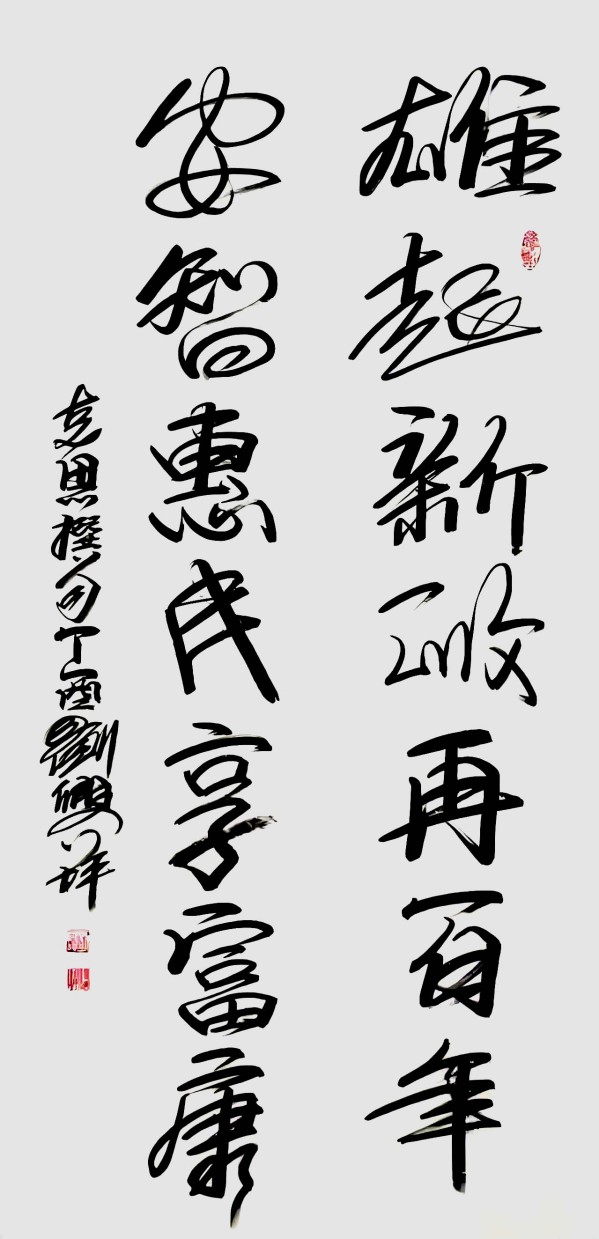 雄起新政再百年
安智惠民享富康
志思撰句丁酉劉興祥